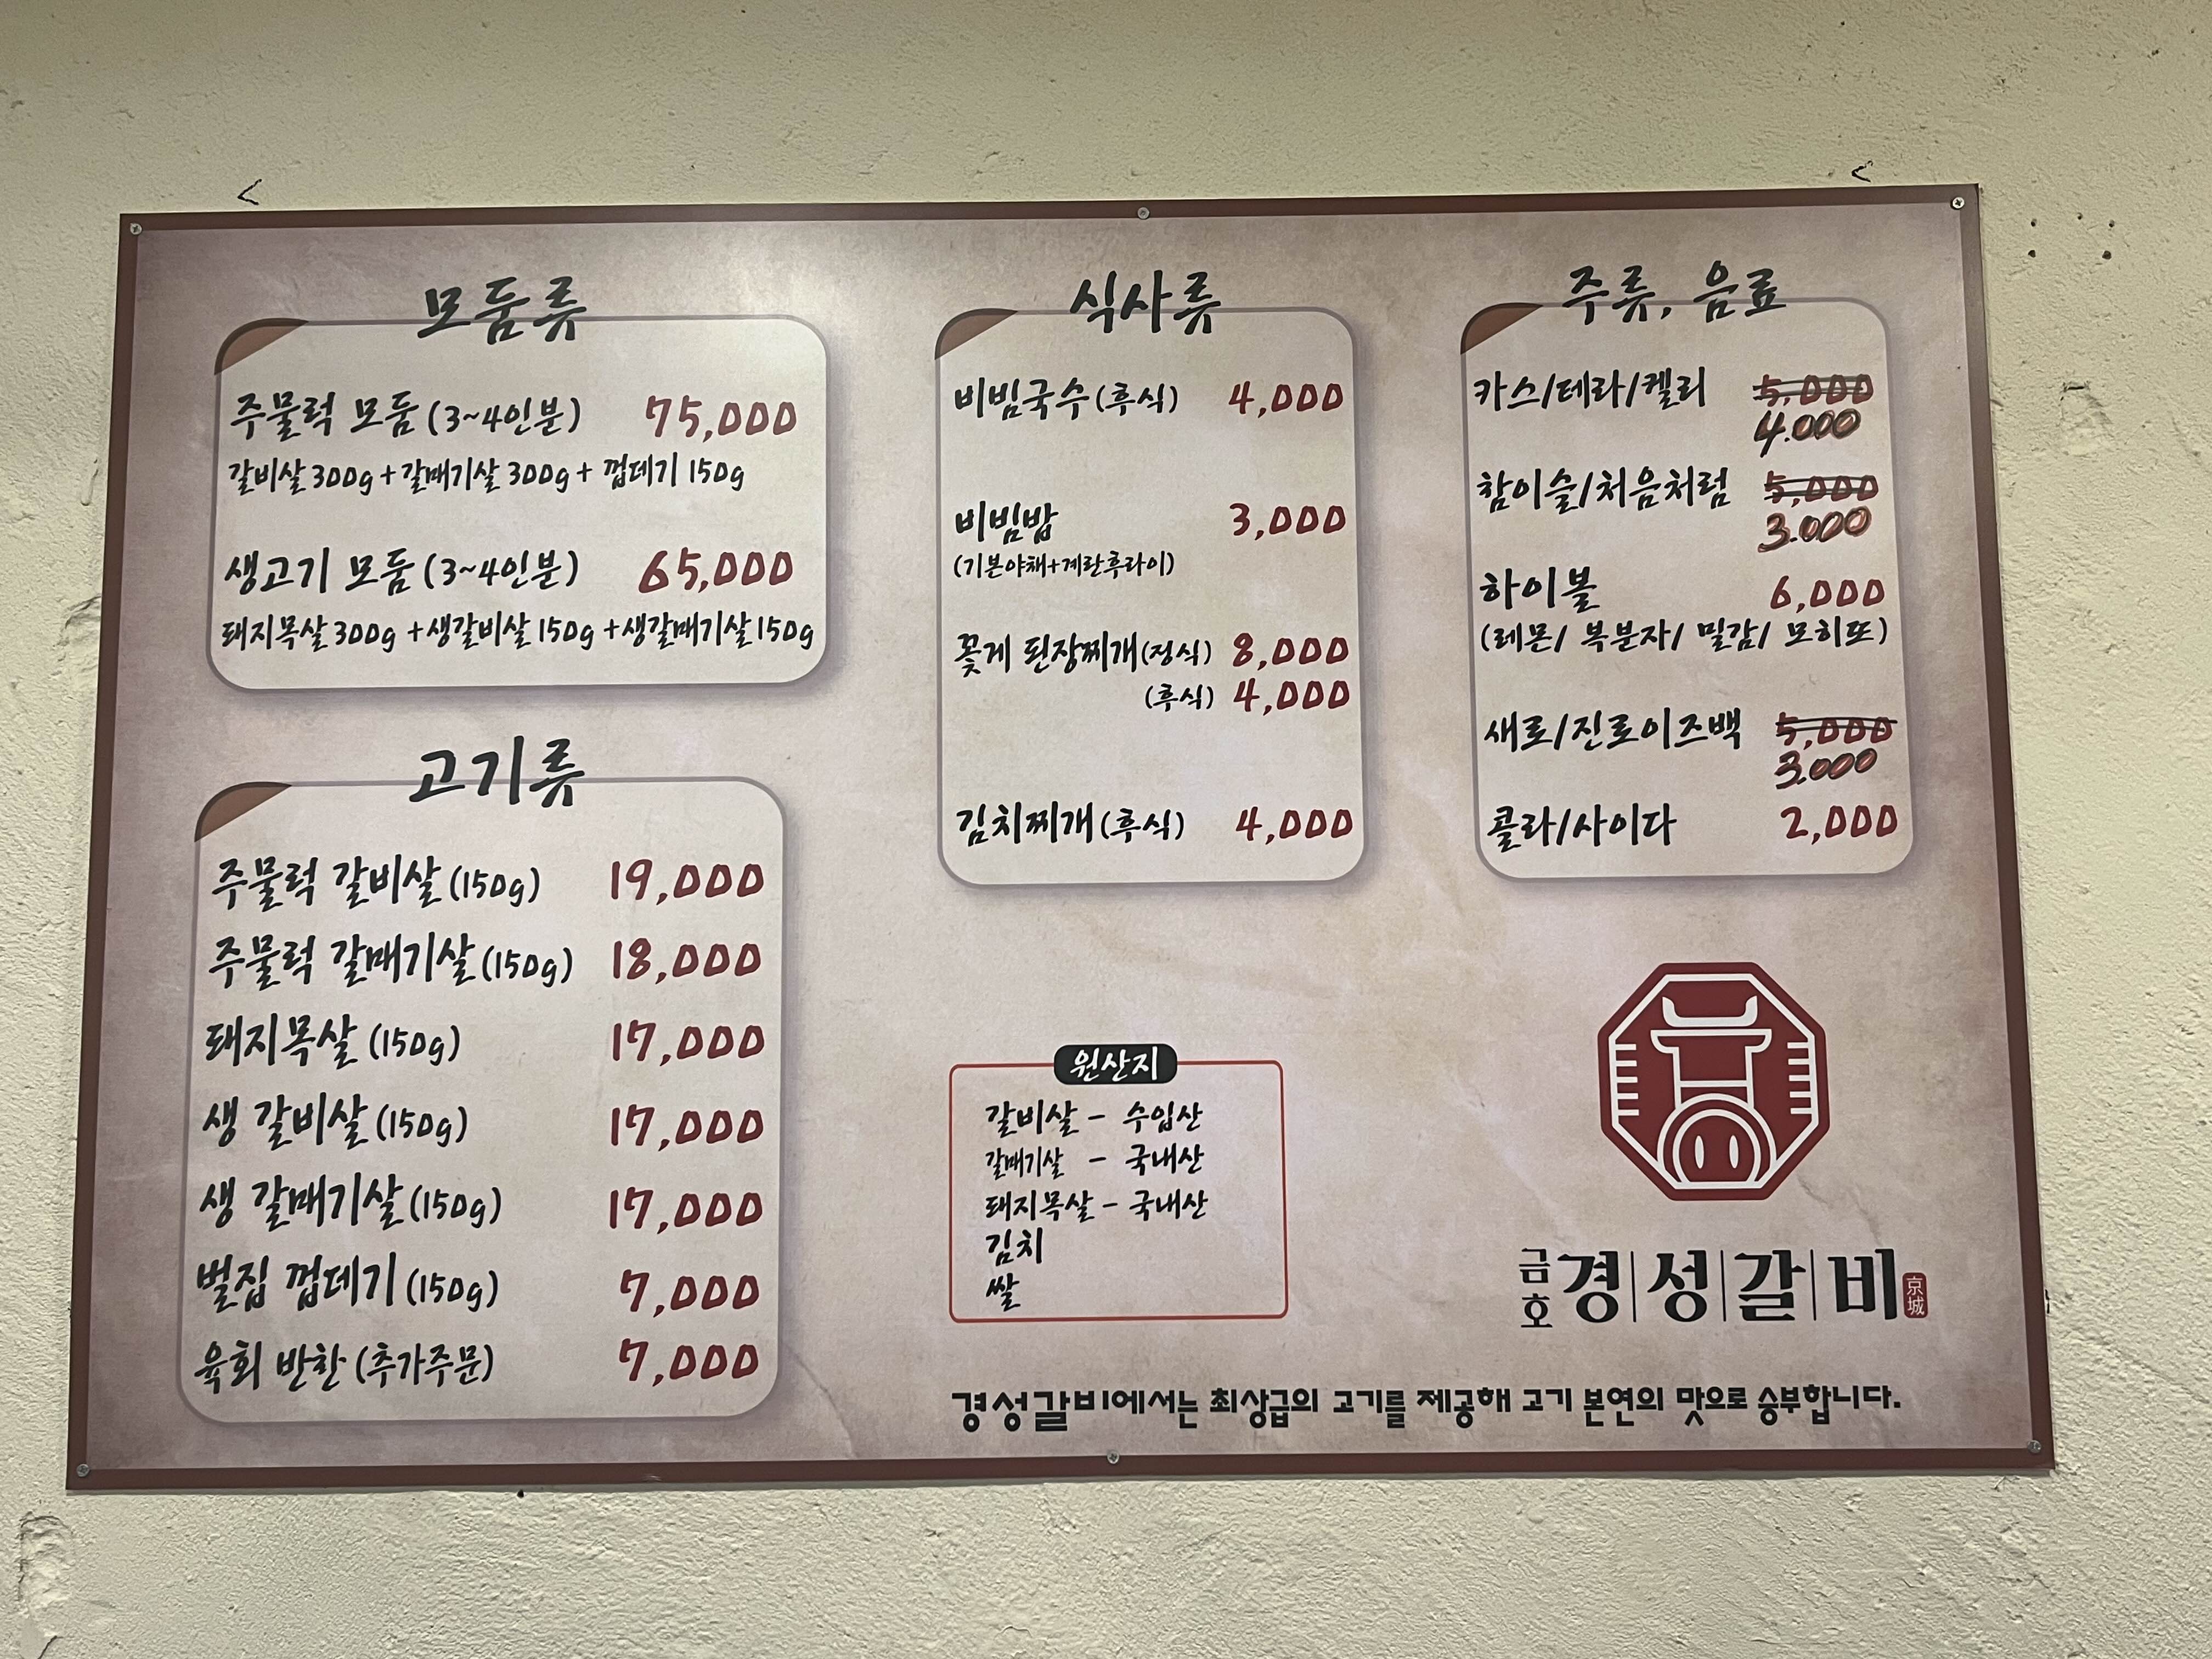 모둠류
주물럭 모둠 (3~4인분) 75,000
갈비살 300g + 갈매기살 300g + 껍데기 150g
생고기 모둠 (3~4인분) 65,000
돼지목살 300g + 생갈비살 150g + 생갈매기살 150g
고기류
주물럭 갈비살 (150g) 19,000
주물럭 갈매기살 (150g) 18,000
돼지목살 (150g) 17,000
생 갈비살 (150g) 17,000
생 갈매기살 (150g) 17,000
벌집 껍데기 (150g) 7,000
육회 반찬 (추가주문) 7,000
식사류
비빔국수 (후식) 4,000
비빔밥 3,000
(기본야채+계란후라이)
꽃게 된장찌개 (정식) 8,000
(후식) 4,000
김치찌개 (후식) 4,000
주류, 음료
카스/테라/켈리 5,000
4.000
참이슬/처음처럼 5,000
3.000
하이볼 6,000
(레몬/ 복분자/ 밀감/ 모히또)
새로/진로이즈백 5,000
3.000
콜라/사이다 2,000
원산지
갈비살 - 수입산
갈매기살 - 국내산
돼지목살 - 국내산
김치
쌀
금호 경성갈비 京城
경성갈비에서는 최상급의 고기를 제공해 고기 본연의 맛으로 승부합니다.